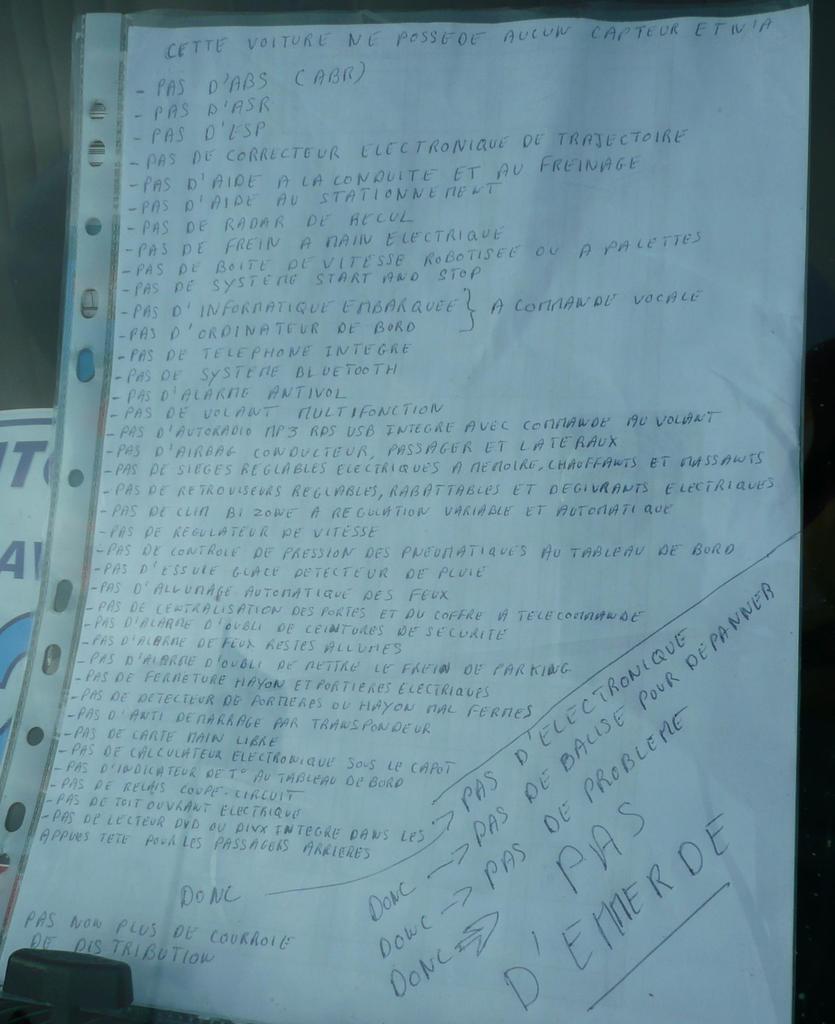 CETTE VOITURE NE POSSEDE AUCUN CAPTEUR ET N'A
- PAS D'ABS (ABR)
- PAS D'ASR
- PAS D'ESP
- PAS DE CORRECTEUR ELECTRONIQUE DE TRAJECTOIRE
- PAS D'AIDE A LA CONDUITE ET AU FREINAGE
- PAS D'AIDE AU STATIONNEMENT
- PAS DE RADAR DE RECUL
- PAS DE FREIN A MAIN ELECTRIQUE
- PAS DE BOITE DE VITESSE ROBOTISEE OU A PALETTES
- PAS DE SYSTEME START AND STOP
- PAS D'INFORMATIQUE EMBARQUEE } A COMMANDE VOCALE
- PAS D'ORDINATEUR DE BORD
- PAS DE TELEPHONE INTEGRE
- PAS DE SYSTEME BLUETOOTH
- PAS D'ALARME ANTIVOL
- PAS DE VOLANT MULTIFONCTION
- PAS D'AUTORADIO MP3 RDS USB INTEGRE AVEC COMMANDE AU VOLANT
- PAS D'AIRBAG CONDUCTEUR, PASSAGER ET LATERAUX
- PAS DE SIEGES REGLABLES ELECTRIQUES A MEMOIRE, CHAUFFANTS ET MASSANTS
- PAS DE RETROVISEURS REGLABLES, RABATTABLES ET DEGIVRANTS ELECTRIQUES
- PAS DE CLIM BI ZONE A REGULATION VARIABLE ET AUTOMATIQUE
- PAS DE REGULATEUR DE VITESSE
- PAS DE CONTROLE DE PRESSION DES PNEUMATIQUES AU TABLEAU DE BORD
- PAS D'ESSUIE GLACE DETECTEUR DE PLUIE
- PAS D'ALLUMAGE AUTOMATIQUE DES FEUX
- PAS DE CENTRALISATION DES PORTES ET DU COFFRE A TELECOMMANDE
- PAS D'ALARME D'OUBLI DE CEINTURES DE SECURITE
- PAS D'ALARME DE FEUX RESTES ALLUMES
- PAS D'ALARME D'OUBLI DE METTRE LE FREIN DE PARKING
- PAS DE FERMETURE HAYON ET PORTIERES ELECTRIQUES
- PAS DE DETECTEUR DE PORTIERES OU HAYON MAL FERMES
- PAS D'ANTI DEMARRAGE PAR TRANSPONDEUR
- PAS DE CARTE MAIN LIBRE
- PAS DE CALCULATEUR ELECTRONIQUE SOUS LE CAPOT
- PAS D'INDICATEUR DE T° AU TABLEAU DE BORD
- PAS DE RELAIS COUPE-CIRCUIT
- PAS DE TOIT OUVRANT ELECTRIQUE
- PAS DE LECTEUR DVD OU DIVX INTEGRE DANS LES
APPUIES TETE POUR LES PASSAGERS ARRIERES
DONC → PAS D'ELECTRONIQUE
DONC → PAS DE BALISE POUR DEPANNER
DONC → PAS DE PROBLEME
DONC ⇒ PAS
D'EMMERDE
PAS NON PLUS DE COURROIE
DE DISTRIBUTION